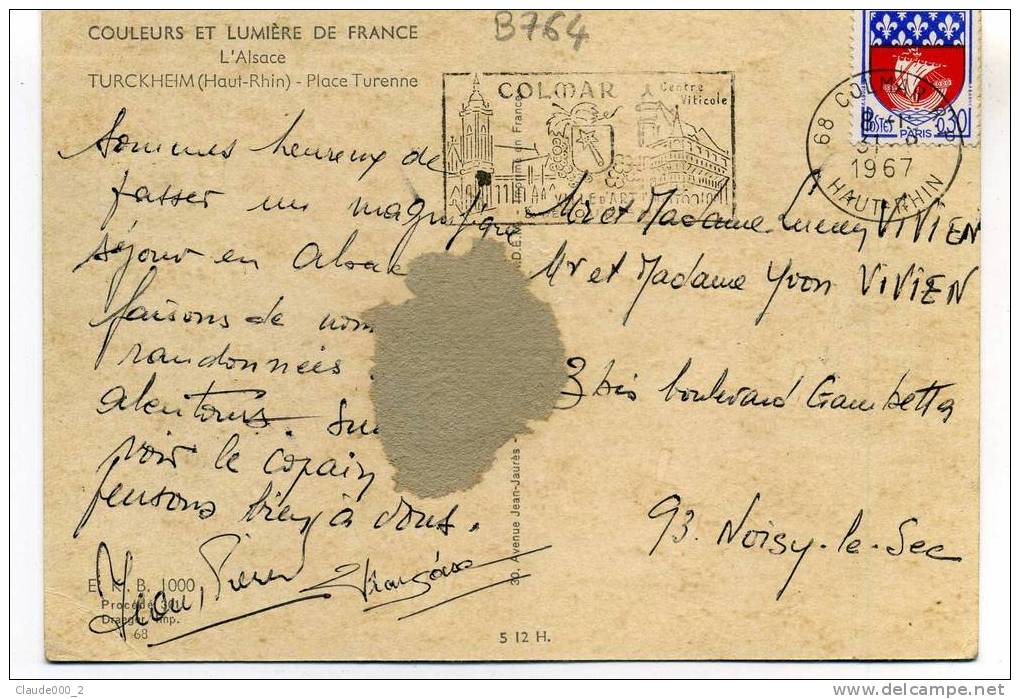 B764
COULEURS ET LUMIÈRE DE FRANCE
L'Alsace
TURCKHEIM (Haut-Rhin) - Place Turenne
COLMAR
Centre
Viticole
VILLE D'ART
68 COLMAR
1967
HAUT-RHIN
POSTES PARIS 0,30
Sommes heureux de
passer un magnifique
séjour en Alsace
faisons de nom
randonnées
alentours.
voir le copain
pensons bien à vous.
Jean, Pierre
Françoise
Mr et Madame Lucien VIVIEN
Mr et Madame Yvon VIVIEN
3 bis boulevard Gambetta
93. Noisy-le-Sec
Imprimé en France
30, Avenue Jean-Jaurès -
E. K. B. 1000
Procédé 301
Draeger Imp.
68
5 12 H.
Claude000_2
delcampe.net